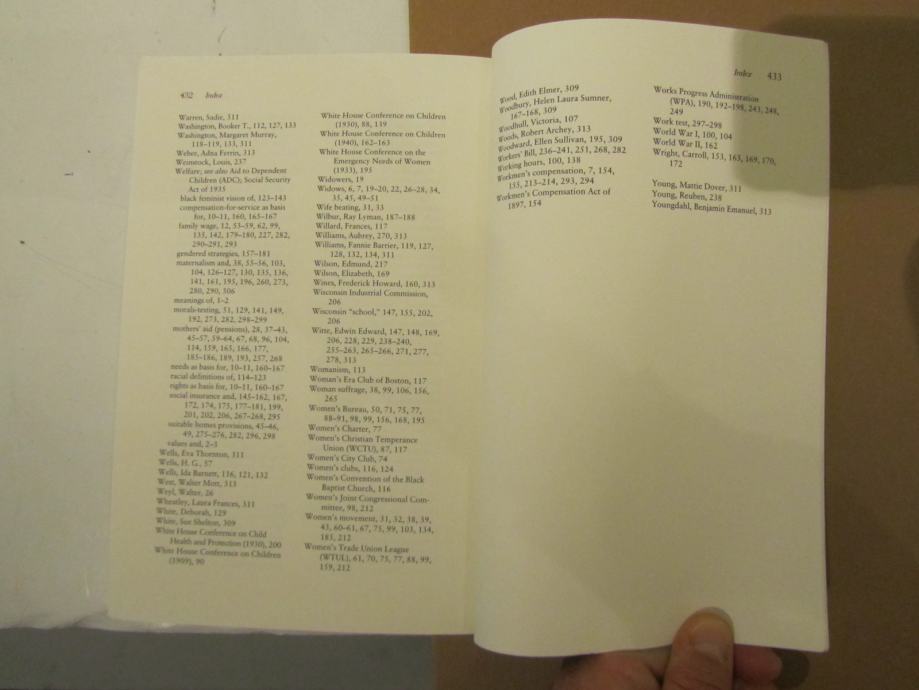 432 Index
Warren, Sadie, 311
Washington, Booker T., 112, 127, 133
Washington, Margaret Murray,
118–119, 133, 311
Weber, Adna Ferrin, 313
Weinstock, Louis, 237
Welfare; see also Aid to Dependent
Children (ADC); Social Security
Act of 1935
black feminist vision of, 123–143
compensation-for-service as basis
for, 10–11, 160, 165–167
family wage, 12, 53–59, 62, 99,
135, 142, 179–180, 227, 282,
290–291, 293
gendered strategies, 157–181
maternalism and, 38, 55–56, 103,
104, 126–127, 130, 135, 136,
141, 161, 195, 196, 260, 273,
280, 290, 306
meanings of, 1–2
morals-testing, 51, 129, 141, 149,
192, 273, 282, 298–299
mothers' aid (pensions), 28, 37–43,
45–57, 59–64, 67, 68, 96, 104,
114, 159, 165, 166, 177,
185–186, 189, 193, 257, 268
needs as basis for, 10–11, 160–167
racial definitions of, 114–123
rights as basis for, 10–11, 160–167
social insurance and, 145–162, 167,
172, 174, 175, 177–181, 199,
201, 202, 206, 267–268, 295
suitable homes provisions, 45–46,
49, 275–276, 282, 296, 298
values and, 2–3
Wells, Eva Thornton, 311
Wells, H. G., 57
Wells, Ida Barnett, 116, 121, 132
West, Walter Mott, 313
Weyl, Walter, 26
Wheatley, Laura Frances, 311
White, Deborah, 129
White, Sue Shelton, 309
White House Conference on Child
Health and Protection (1930), 200
White House Conference on Children
(1909), 90
White House Conference on Children
(1930), 88, 139
White House Conference on Children
(1940), 162–163
White House Conference on the
Emergency Needs of Women
(1933), 195
Widowers, 19
Widows, 6, 7, 19–20, 22, 26–28, 34,
35, 45, 49–51
Wife beating, 31, 33
Wilbur, Ray Lyman, 187–188
Willard, Frances, 117
Williams, Aubrey, 270, 313
Williams, Fannie Barrier, 119, 127,
128, 132, 134, 311
Wilson, Edmund, 217
Wilson, Elizabeth, 169
Wines, Frederick Howard, 160, 313
Wisconsin Industrial Commission,
206
Wisconsin "school," 147, 155, 202,
206
Witte, Edwin Edward, 147, 148, 169,
206, 228, 229, 238–240,
255–263, 265–266, 271, 277,
278, 313
Womanism, 113
Woman's Era Club of Boston, 117
Woman suffrage, 38, 99, 106, 156,
265
Women's Bureau, 50, 71, 75, 77,
88–91, 98, 99, 156, 168, 195
Women's Charter, 77
Women's Christian Temperance
Union (WCTU), 87, 117
Women's City Club, 74
Women's clubs, 116, 124
Women's Convention of the Black
Baptist Church, 116
Women's Joint Congressional Com-
mittee, 98, 212
Women's movement, 31, 32, 38, 39,
43, 60–61, 67, 75, 99, 103, 134,
185, 212
Women's Trade Union League
(WTUL), 61, 70, 75, 77, 88, 99,
159, 212
Index 433
Wood, Edith Elmer, 309
Woodbury, Helen Laura Sumner,
167–168, 309
Woodhull, Victoria, 107
Woods, Robert Archey, 313
Woodward, Ellen Sullivan, 195, 309
Workers' Bill, 236–241, 251, 268, 282
Working hours, 100, 138
Workmen's compensation, 7, 154,
155, 213–214, 293, 294
Workmen's Compensation Act of
1897, 154
Works Progress Administration
(WPA), 190, 192–198, 243, 248,
249
Work test, 297–298
World War I, 100, 104
World War II, 162
Wright, Carroll, 153, 163, 169, 170,
172
Young, Mattie Dover, 311
Young, Reuben, 238
Youngdahl, Benjamin Emanuel, 313